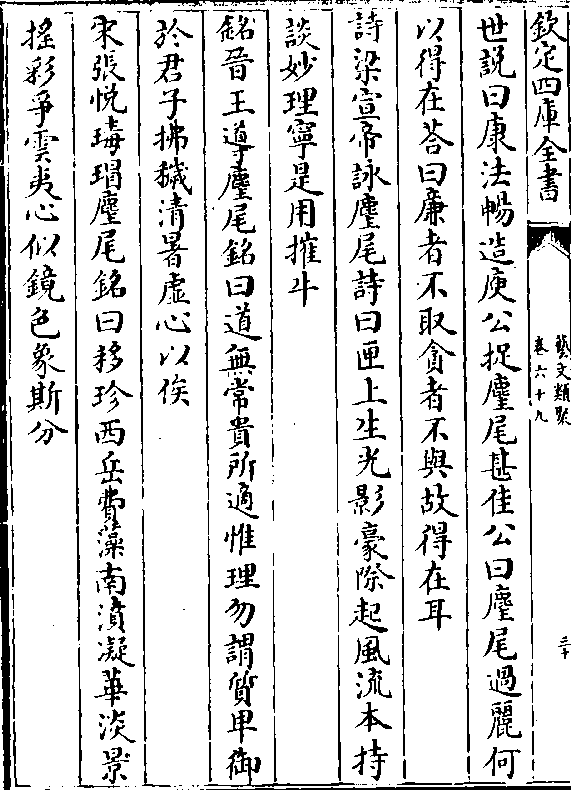 欽定四庫全書
藝文類聚
卷六十九
三十
世說曰康法暢造庾公捉麈尾甚佳公曰麈尾過麗何
以得在荅曰廉者不取貪者不與故得在耳
詩梁宣帝詠麈尾詩曰匣上生光影豪際起風流本持
談妙理寧是用摧牛
銘晉王導麈尾銘曰道無常貴所適惟理勿謂質卑御
於君子拂穢清暑虛心以俟
宋張悅瑇瑁麈尾銘曰移珍西岳費藻南濆凝華淡景
搖彩爭雲夷心似鏡色象斯分